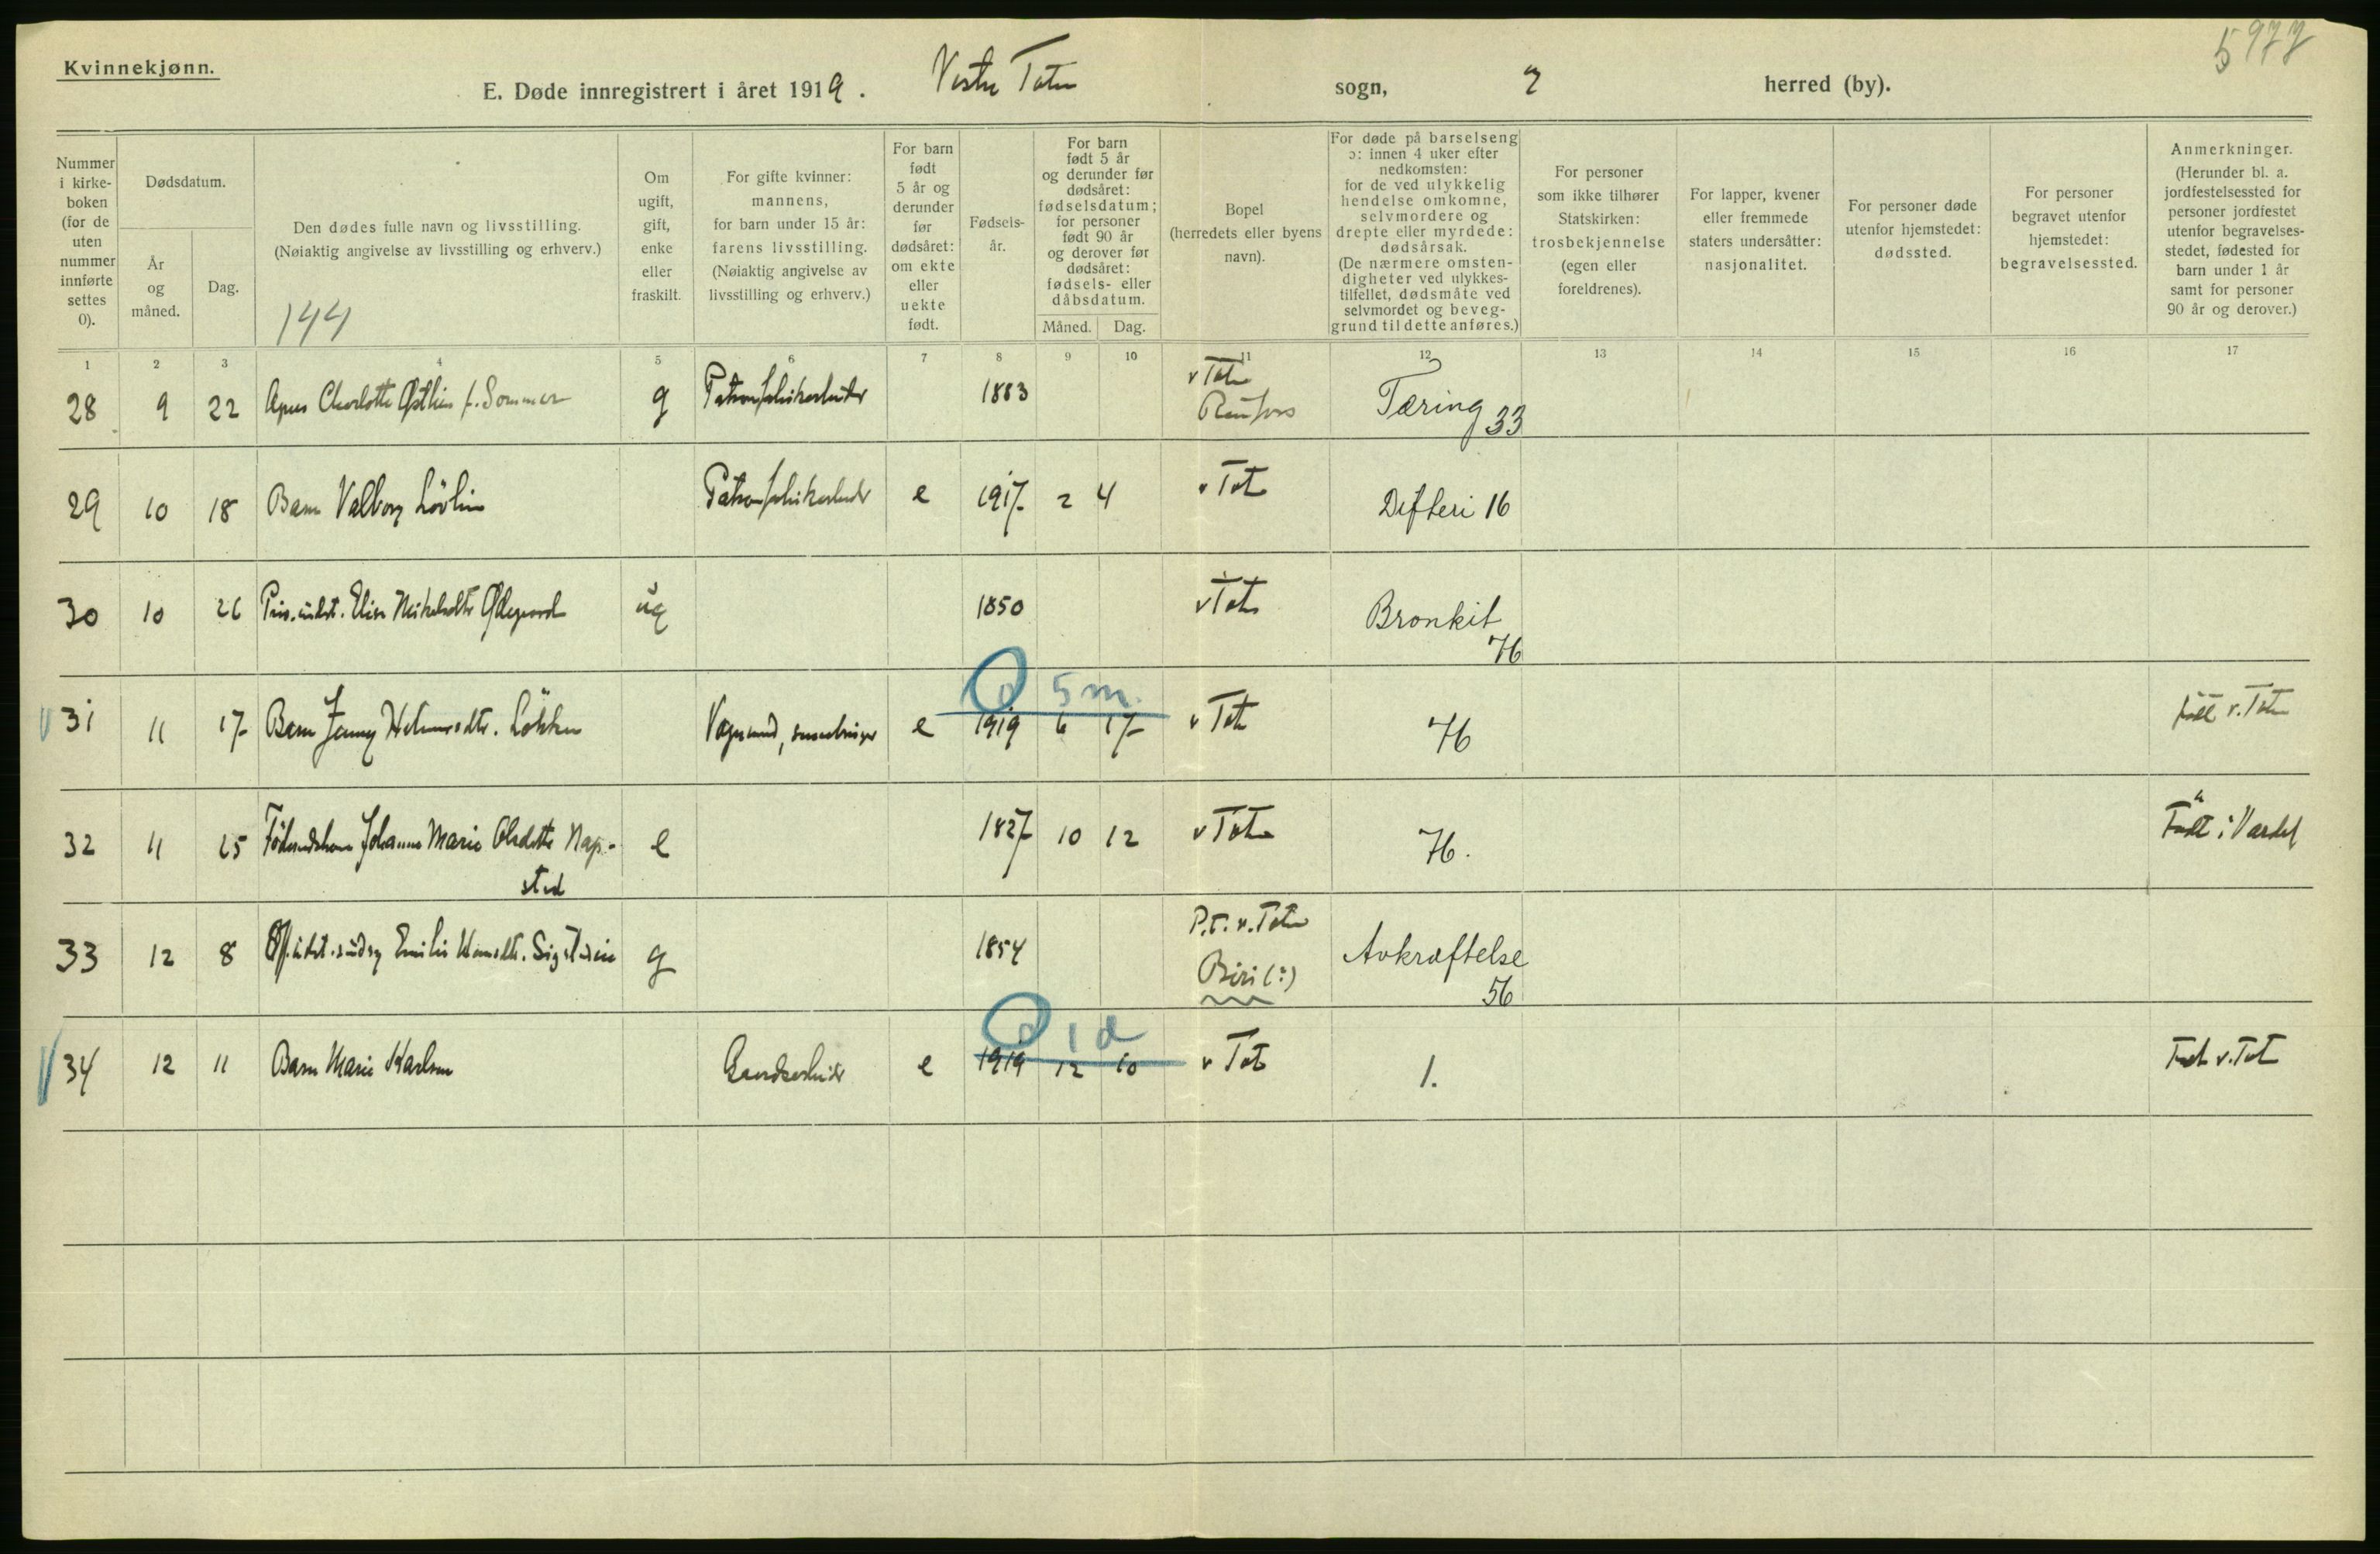 Kvinnekjønn.
5977
E. Døde innregistrert i året 1919. Vestre Toten sogn, 2 herred (by).
Nummer i kirke-boken (for de uten nummer innførte settes 0).
Dødsdatum.
År og måned.
Dag.
Den dødes fulle navn og livsstilling.
(Nøiaktig angivelse av livsstilling og erhverv.)
144
Om ugift, gift, enke eller fraskilt.
For gifte kvinner: mannens, for barn under 15 år: farens livsstilling.
(Nøiaktig angivelse av livsstilling og erhverv.)
For barn født 5 år og derunder før dødsåret: om ekte eller uekte født.
Fødsels-år.
For barn født 5 år og derunder før dødsåret: fødselsdatum; for personer født 90 år og derover før dødsåret: fødsels- eller dåbsdatum.
Måned. Dag.
Bopel (herredets eller byens navn).
For døde på barselseng ɔ: innen 4 uker efter nedkomsten: for de ved ulykkelig hendelse omkomne, selvmordere og drepte eller myrdede: dødsårsak.
(De nærmere omsten-digheter ved ulykkes-tilfellet, dødsmåte ved selvmordet og beveg-grund til dette anføres.)
For personer som ikke tilhører Statskirken: trosbekjennelse (egen eller foreldrenes).
For lapper, kvener eller fremmede staters undersåtter: nasjonalitet.
For personer døde utenfor hjemstedet: dødssted.
For personer begravet utenfor hjemstedet: begravelsessted.
Anmerkninger.
(Herunder bl. a. jordfestelsessted for personer jordfestet utenfor begravelses-stedet, fødested for barn under 1 år samt for personer 90 år og derover.)
1 2 3 4 5 6 7 8 9 10 11 12 13 14 15 16 17
28 9 22 Charlotte f. Sommer g 1883 v Toten Raufoss Tæring 33
29 10 18 Barn Valborg Lövlien e 1917 2 4 v Toten Difteri 16
30 10 26 Elise Ødegaard ug 1850 v Toten Bronkit 76
d 5 m.
31 11 17 Barn Jenny Løkken e 1919 6 17 v Toten 76 født v. Toten
32 11 25 Johanne Marie Olsdatter Nap-sted e 1827 10 12 v Toten 76. Født i Vardal
33 12 8 Emilie g 1854 P.t. v. Toten Biri (?) Avkræftelse 56
d 1 d
34 12 11 Barn Marie Karlsen Gaardsarbeider e 1919 12 10 v Toten 1. Født v. Toten